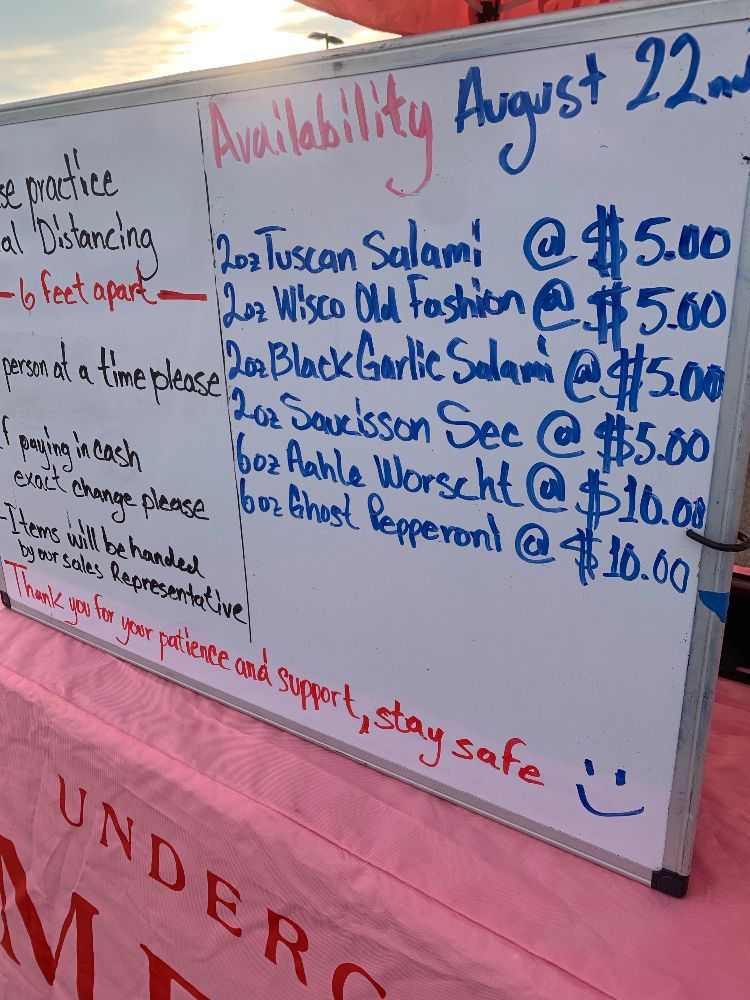 se practice
al Distancing
- 6 feet apart -
person at a time please
f paying in cash
exact change please
- Items will be handed
by our sales Representative
Availability August 22nd
2oz Tuscan Salami @ $5.00
2oz Wisco Old Fashion @ $5.00
2oz Black Garlic Salami @ $5.00
2oz Saucisson Sec @ $5.00
6oz Aahle Worscht @ $10.00
6oz Ghost Pepperoni @ $10.00
Thank you for your patience and support, stay safe
UNDERG
ME